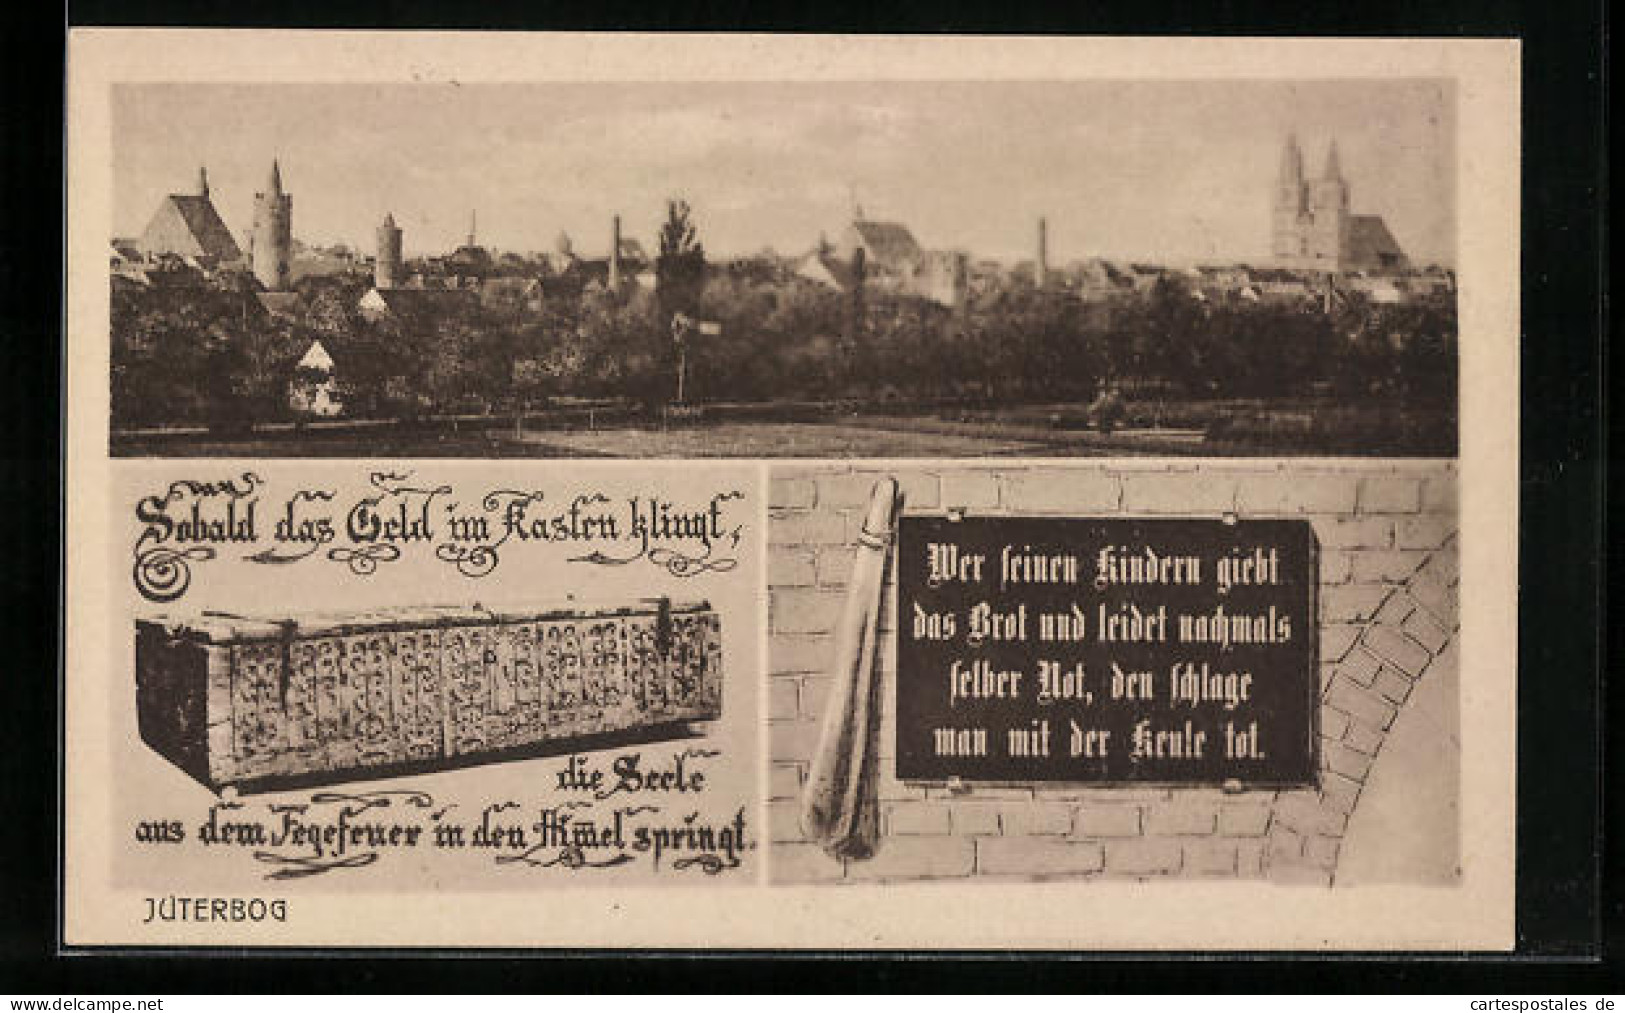 Sobald das Geld im Kasten klingt,
die Seele
aus dem Fegefeuer in den Him̅el springt.
Wer seinen Kindern giebt
das Brot und leidet nachmals
selber Not, den schlage
man mit der Keule tot.
JÜTERBOG
www.delcampe.net
cartespostales de